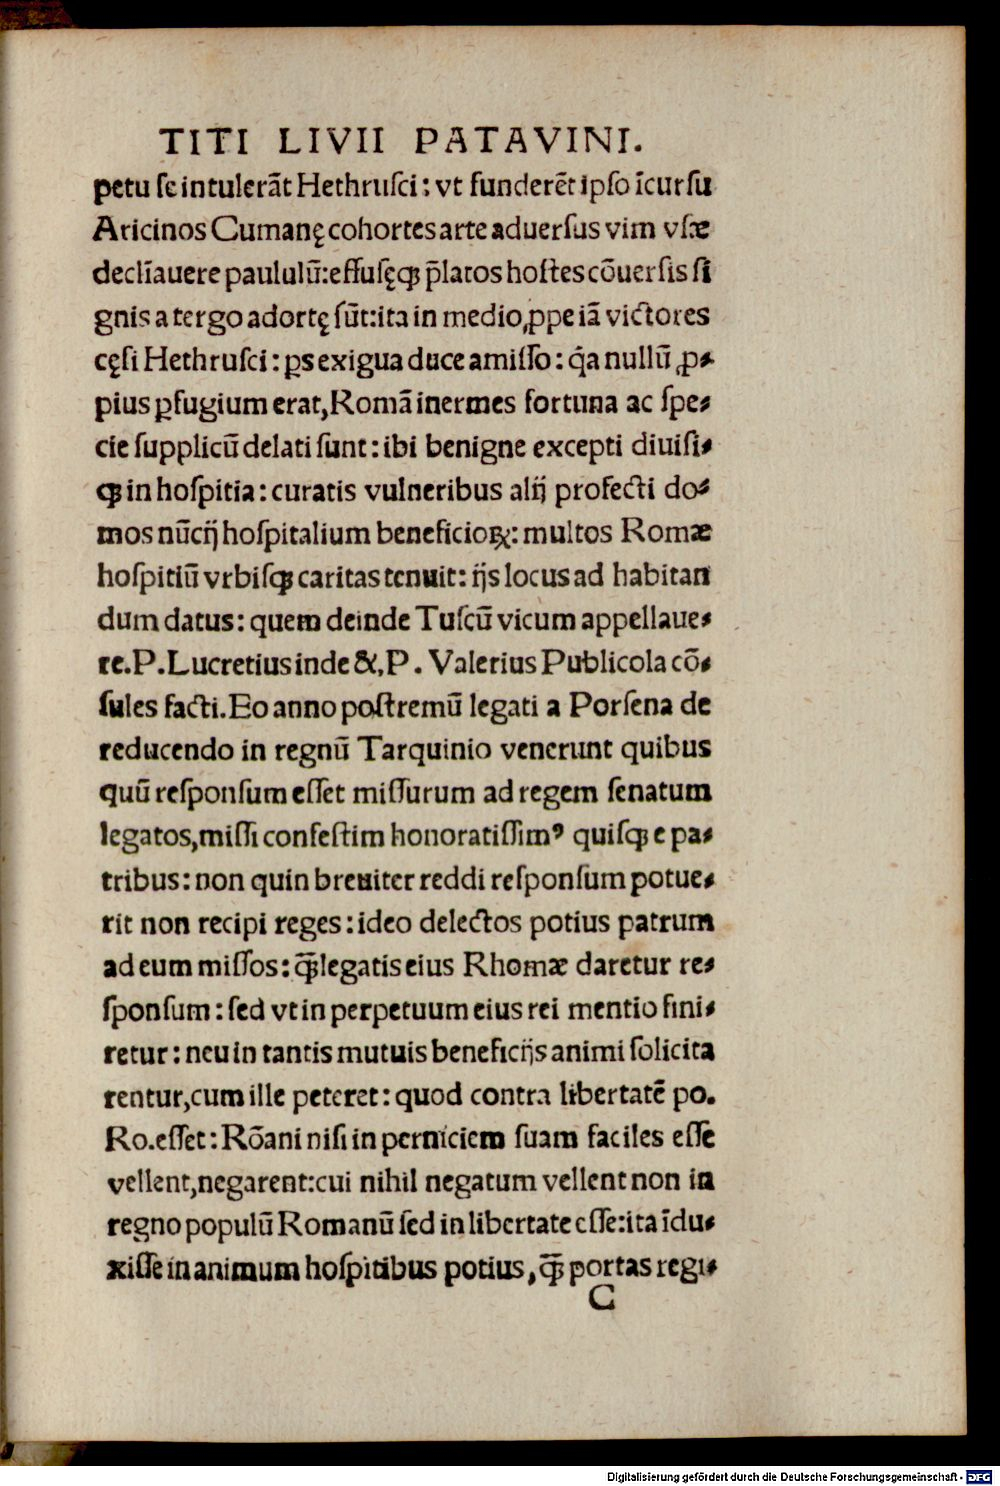 TITI LIVII PATAVINI.
petu se intulerāt Hethrusci: vt funderēt ipso īcursu
Aricinos Cumanę cohortes arte aduersus vim vsæ
declīauere paululū: effusęq̃ p̄latos hostes cōuersis si
gnis a tergo adortę sūt: ita in medio ꝓpe iā victores
cęsi Hethrusci: ꝑs exigua duce amisso: q̃a nullū ꝓ⸗
pius ꝑfugium erat, Romā inermes fortuna ac spe⸗
cie supplicū delati sunt: ibi benigne excepti diuisi⸗
qꝫ in hospitia: curatis vulneribus alij profecti do⸗
mos nūcij hospitalium beneficioꝝ: multos Romæ
hospitiū vrbisqꝫ caritas tenuit: ijs locus ad habitan
dum datus: quem deinde Tuscū vicum appellaue⸗
re. P. Lucretius inde &. P. Valerius Publicola cō⸗
sules facti. Eo anno postremū legati a Porsena de
reducendo in regnū Tarquinio venerunt quibus
quū responsum esset missurum ad regem senatum
legatos, missi confestim honoratissimꝰ quisqꝫ e pa⸗
tribus: non quin breuiter reddi responsum potue⸗
rit non recipi reges: ideo delectos potius patrum
ad eum missos: q̄ꝫ legatis eius Rhomæ daretur re⸗
sponsum: sed vt in perpetuum eius rei mentio fini⸗
retur: neu in tantis mutuis beneficijs animi solicita
rentur, cum ille peteret: quod contra libertatē po.
Ro. esset: Rōani nisi in perniciem suam faciles esse
vellent, negarent: cui nihil negatum vellent non in
regno populū Romanū sed in libertate esse: ita īdu⸗
xisse in animum hospitibus potius, q̄ꝫ portas regi⸗
C
Digitalisierung gefördert durch die Deutsche Forschungsgemeinschaft - DFG